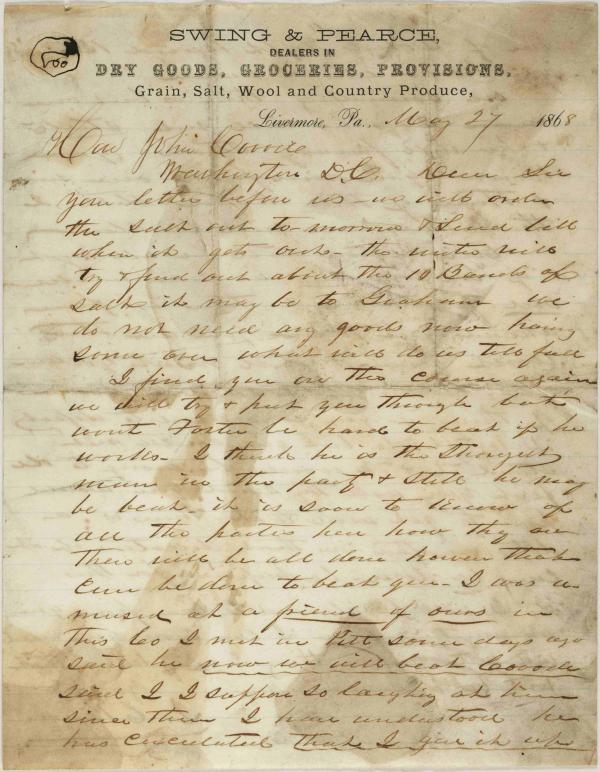 SWING & PEARCE,
DEALERS IN
DRY GOODS, GROCERIES, PROVISIONS,
Grain, Salt, Wool and Country Produce,
Livermore, Pa., May 27 1868
Hon John Covode
Washington D.C. Dear Sir
your letter before us - we will order
the salt out to-morrow & send bill
when it gets out - the writer will
try & find out about the 10 Barrels of
salt it may be to Graham we
do not need any goods now having
some over what will do us till fall
I find you on the course again
we will try & put you through but
wont Foster be hard to beat if he
works - I think he is the strongest
man in the party & still he may
be beat - it is soon to know of
all the parties here how they are
There will be all done however that
can be done to beat you - I was a-
mused at a friend of ours in
this Co I met in Pitt some days ago
said he now we will beat Covode
said I I suppose so laughing at him
since then I have understood he
has circulated that I give it up